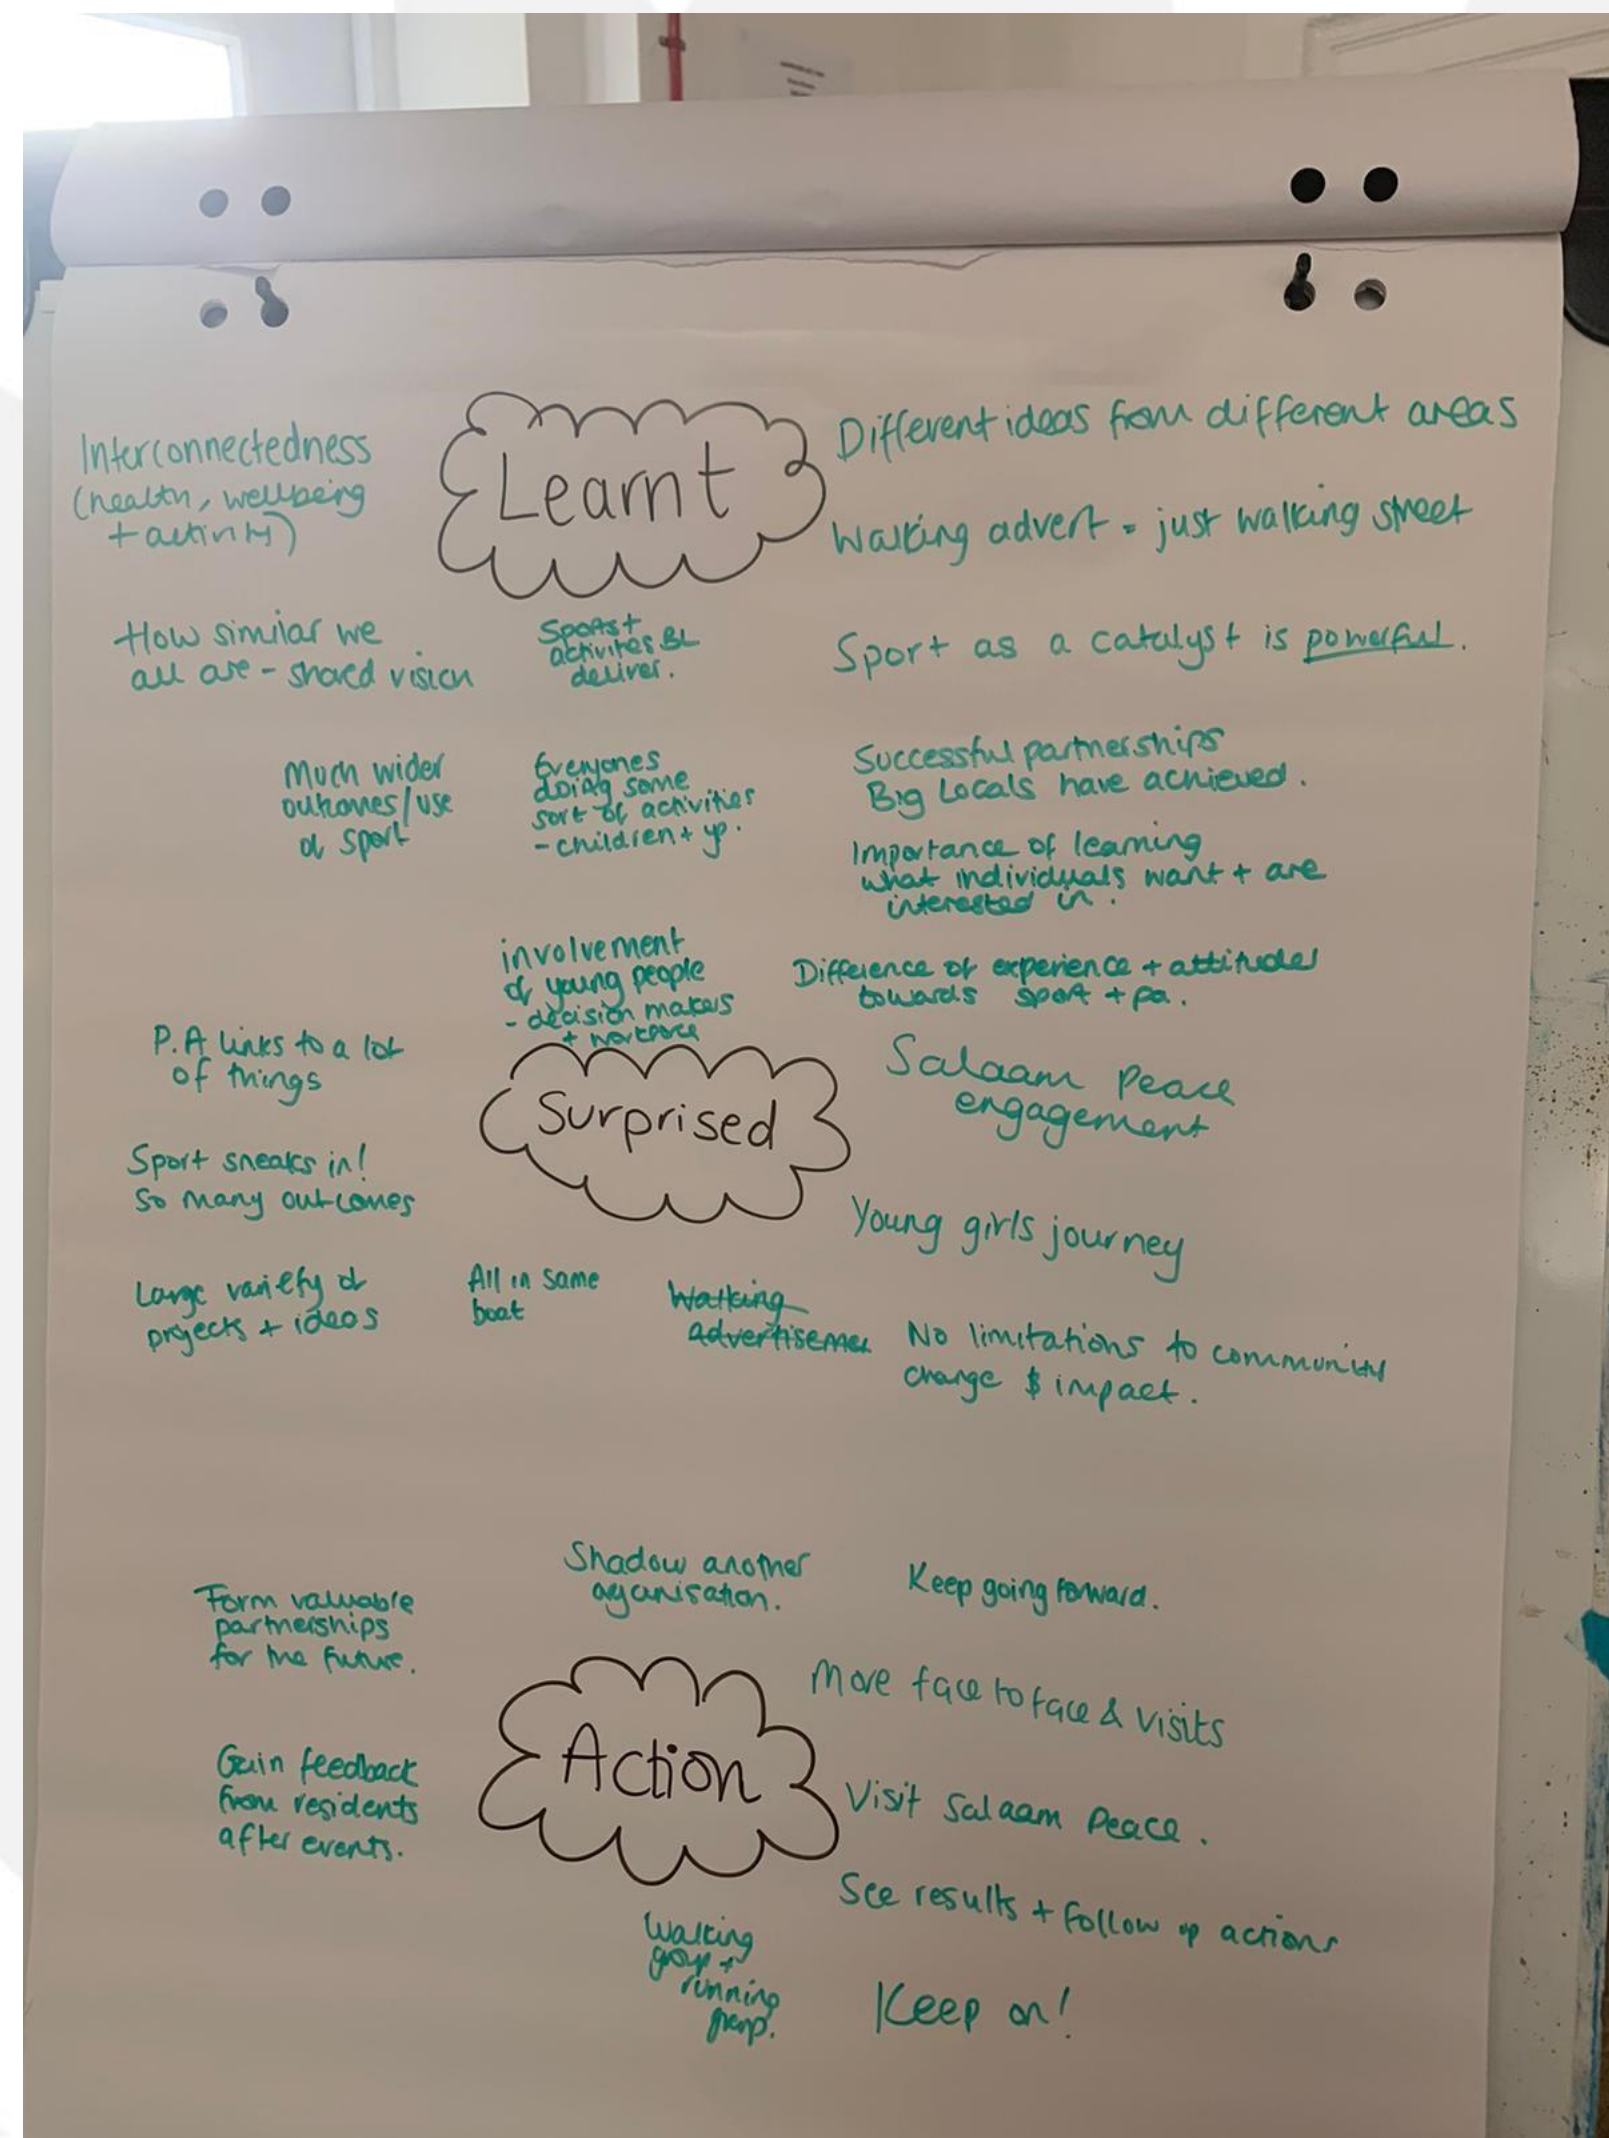 Learnt
Interconnectedness
(health, wellbeing
+ activity)
Different ideas from different areas
Walking advert = just walking street
How similar we
all are - shared vision
Sports +
activites BL
deliver.
Sport as a catalyst is powerful.
Much wider
outcomes/use
of sport
Everyones
doing some
sort of activities
- children + yp.
Successful partnerships
Big Locals have achieved.
Importance of learning
what individuals want + are
interested in.
involvement
of young people
- decision makers
+ workforce
Difference of experience + attitudes
towards sport + pa.
Surprised
P.A links to a lot
of things
Salaam Peace
engagement
Sport sneaks in!
So many outcomes
Young girls journey
Large variety of
projects + ideas
All in same
boat
Walking
advertisemen
No limitations to community
change & impact.
Action
Shadow another
organisation.
Keep going forward.
Form valuable
partnerships
for the future.
More face to face & visits
Gain feedback
from residents
after events.
Visit Salaam Peace.
See results + follow up actions
Walking
group +
running
group.
Keep on!